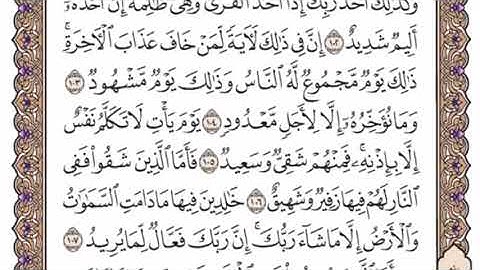 وَكَذَٰلِكَ أَخْذُ رَبِّكَ إِذَا أَخَذَ الْقُرَىٰ وَهِيَ ظَالِمَةٌ إِنَّ أَخْذَهُ
أَلِيمٌ شَدِيدٌ ١٠٢ إِنَّ فِي ذَٰلِكَ لَآيَةً لِّمَنْ خَافَ عَذَابَ الْآخِرَةِ ۚ
ذَٰلِكَ يَوْمٌ مَّجْمُوعٌ لَّهُ النَّاسُ وَذَٰلِكَ يَوْمٌ مَّشْهُودٌ ١٠٣
وَمَا نُؤَخِّرُهُ إِلَّا لِأَجَلٍ مَّعْدُودٍ ١٠٤ يَوْمَ يَأْتِ لَا تَكَلَّمُ نَفْسٌ
إِلَّا بِإِذْنِهِ ۚ فَمِنْهُمْ شَقِيٌّ وَسَعِيدٌ ١٠٥ فَأَمَّا الَّذِينَ شَقُوا فَفِي
النَّارِ لَهُمْ فِيهَا زَفِيرٌ وَشَهِيقٌ ١٠٦ خَالِدِينَ فِيهَا مَا دَامَتِ السَّمَاوَاتُ
وَالْأَرْضُ إِلَّا مَا شَاءَ رَبُّكَ ۚ إِنَّ رَبَّكَ فَعَّالٌ لِّمَا يُرِيدُ ١٠٧